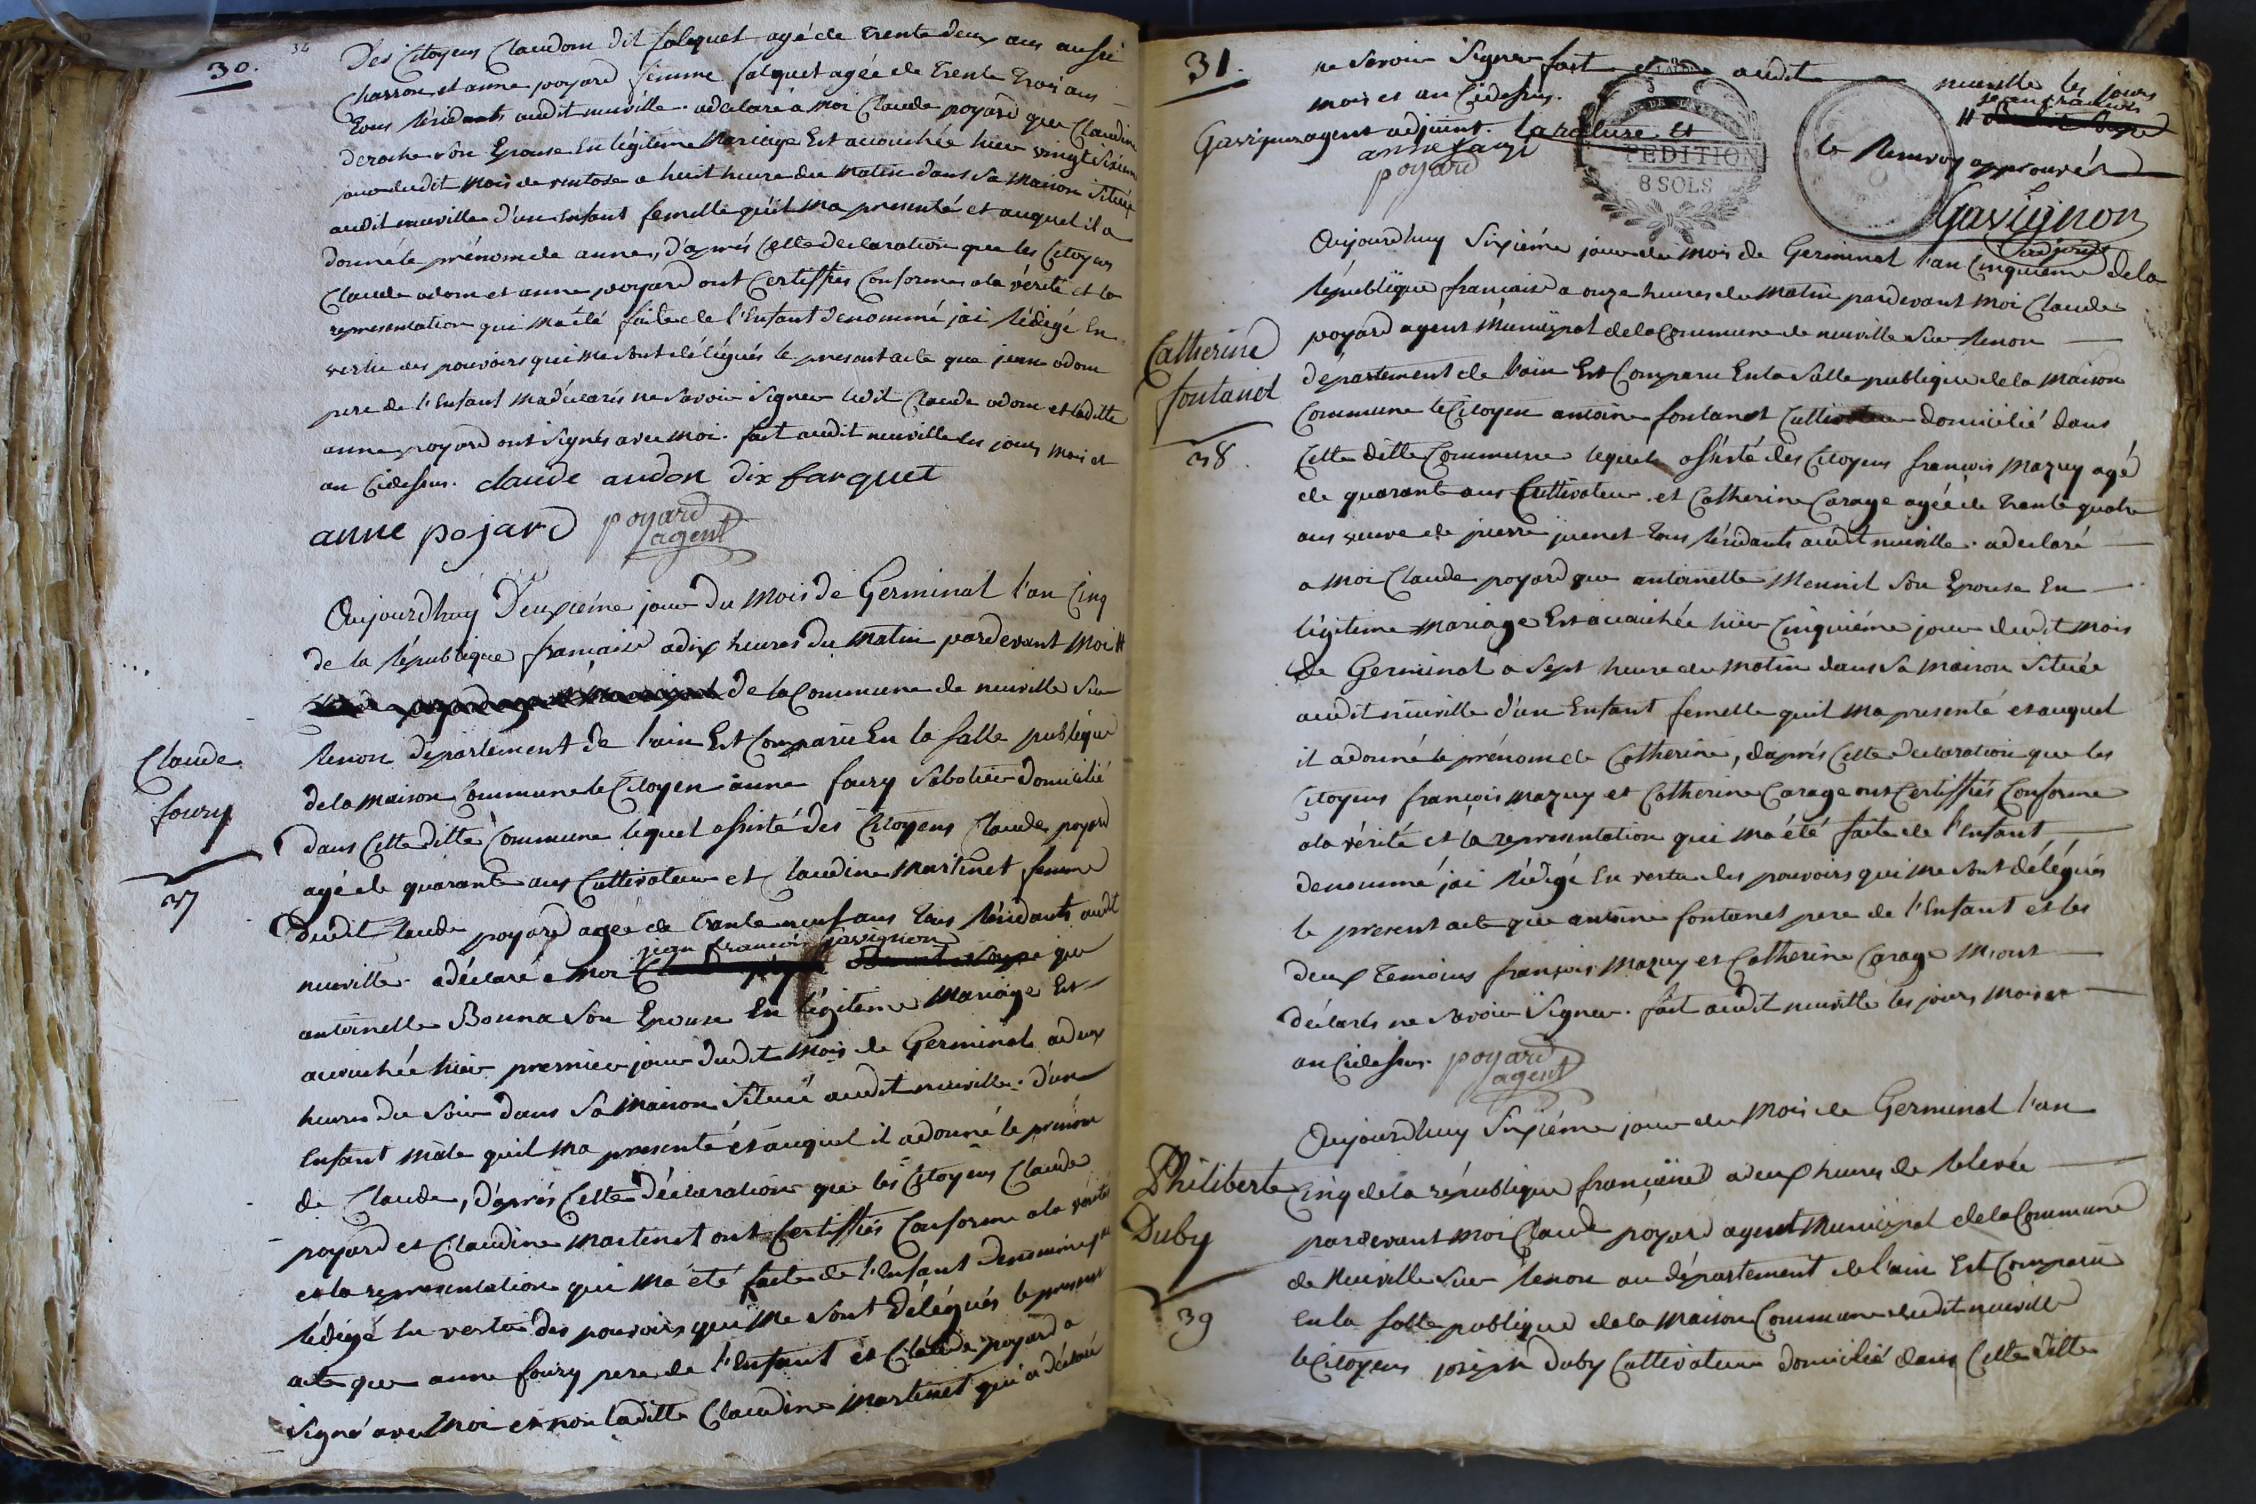 30.
34
Des Citoyens Claudom dit falquet agé de trente deux ans aussi
Charron et anne poyard femme falquet agée de trente trois ans
tous résidants audit neuville. adeclaré a moi Claude poyard que Claudine
deroche son Epouse En légitime Mariage Est accouchée hier vingt sixieme
jour dudit mois de ventose a huit heure du matin dans sa maison située
audit neuville d'un Enfant femelle quil ma presenté et auquel il a
donné le prénom de anne, d'aprés Cette declaration que les Citoyens
Claude adom et anne poyard ont Certiffiés Conforme a la vérité et la
representation qui ma été faite de l'Enfant denommé jai rédigé En
vertu des pouvoirs qui me sont délégués le present acte que jean adom
pere de l'Enfant ma déclaré ne savoir signer ledit Claude adom et laditte
anne poyard ont signés avec moi. fait audit neuville les jours mois et
an Cidessus. claude audon dix farquet
anne pojard poyard
agent
Aujourdhuy Deuxiéme jour du Mois de Germinal l'an Cinq
de la république française adix heures du matin pardevant moi #
de la Commune de neuville sur
Renon département de l'ain Est Comparu En la salle publique
Claude
foury
37
de la maison Commune le Citoyen anne foury Sabotier domicilié
dans Cette ditte Commune lequel assisté des Citoyens Claude poyard
agé de quarante ans Cultivateur et Claudine Martinet femme
dudit Claude poyard agée de trante neuf ans tous résidants audit
jean françois gavignon
neuville. a déclaré a moi que
antoinette Bonna son Epouse En légitime Mariage Est
accouchée hier premier jour dudit Mois de Germinal adeux
heures du soir dans sa maison située audit neuville. d'un
Enfant mâle quil ma presenté et auquel il adonné le prénom
de Claude, d'aprés Cette Déclaration que les Citoyens Claude
poyard et Claudine Martinet ont Certiffiés Conforme a la vérité
et la representation qui ma été faite de l'Enfant denommé jai
rédigé En vertu des pouvoirs qui me sont délégués le present
acte que anne foury pere de l'Enfant et Claude poyard a
signé avec moi et non laditte Claudine Martinet qui a déclaré
31.
ne savoir signer fait et audit neuville les jours
mois et an Cidessus.
jean francois
#
Gavignon agent adjoint. la rature Et
le Renvoy approuvés
anne fauri
poyard
PEDITION
8 SOLS
Gavignon
adjoint
Aujourdhuy Sixiéme jour du mois de Germinal l'an Cinquieme de la
république française a onze heures du matin pardevant moi Claude
poyard agent Municipal de la Commune de neuville sur Renon
Catherine
fontanet
38.
département de l'ain Est Comparu En la Salle publique de la maison
Commune le Citoyen antoine fontanet Cultivateur domicilié dans
Cette ditte Commune lequel assisté des Citoyens françois Mazuy agé
de quarante ans Cultivateur. et Catherine Carage agée de trente quatre
ans veuve de pierre juenet tous résidants audit neuville. a declaré
a moi Claude poyard que antoinette Mennil son Epouse En
légitime Mariage Est accouchée hier Cinquiéme jour dudit mois
de Germinal a sept heure du matin dans sa maison située
audit neuville d'un Enfant femelle quil ma presenté et auquel
il a donné le prénom de Catherine, daprés Cette declaration que les
Citoyens françois mazuy et Catherine Carage ont Certiffiés Conforme
a la vérité et la representation qui ma été faite de l'Enfant
denommé jai rédigé En vertu des pouvoirs qui me sont délégués
le present acte que antoine fontanet pere de l'Enfant et les
deux temoins françois Mazuy et Catherine Carage mont
déclarés ne savoir signer. fait audit neuville les jours mois et
an Cidessus. poyard
agent
Aujourdhuy Sixiéme jour du Mois de Germinal l'an
Philiberte
Duby
39
Cinq de la république française adeux heures de relevée
pardevant moi Claude poyard agent Municipal de la Commune
de Neuville sur Renon au département de l'ain Est Comparu
En la salle publique de la Maison Commune dudit neuville
le Citoyen joseph Duby Cultivateur domicilié dans Cette ditte